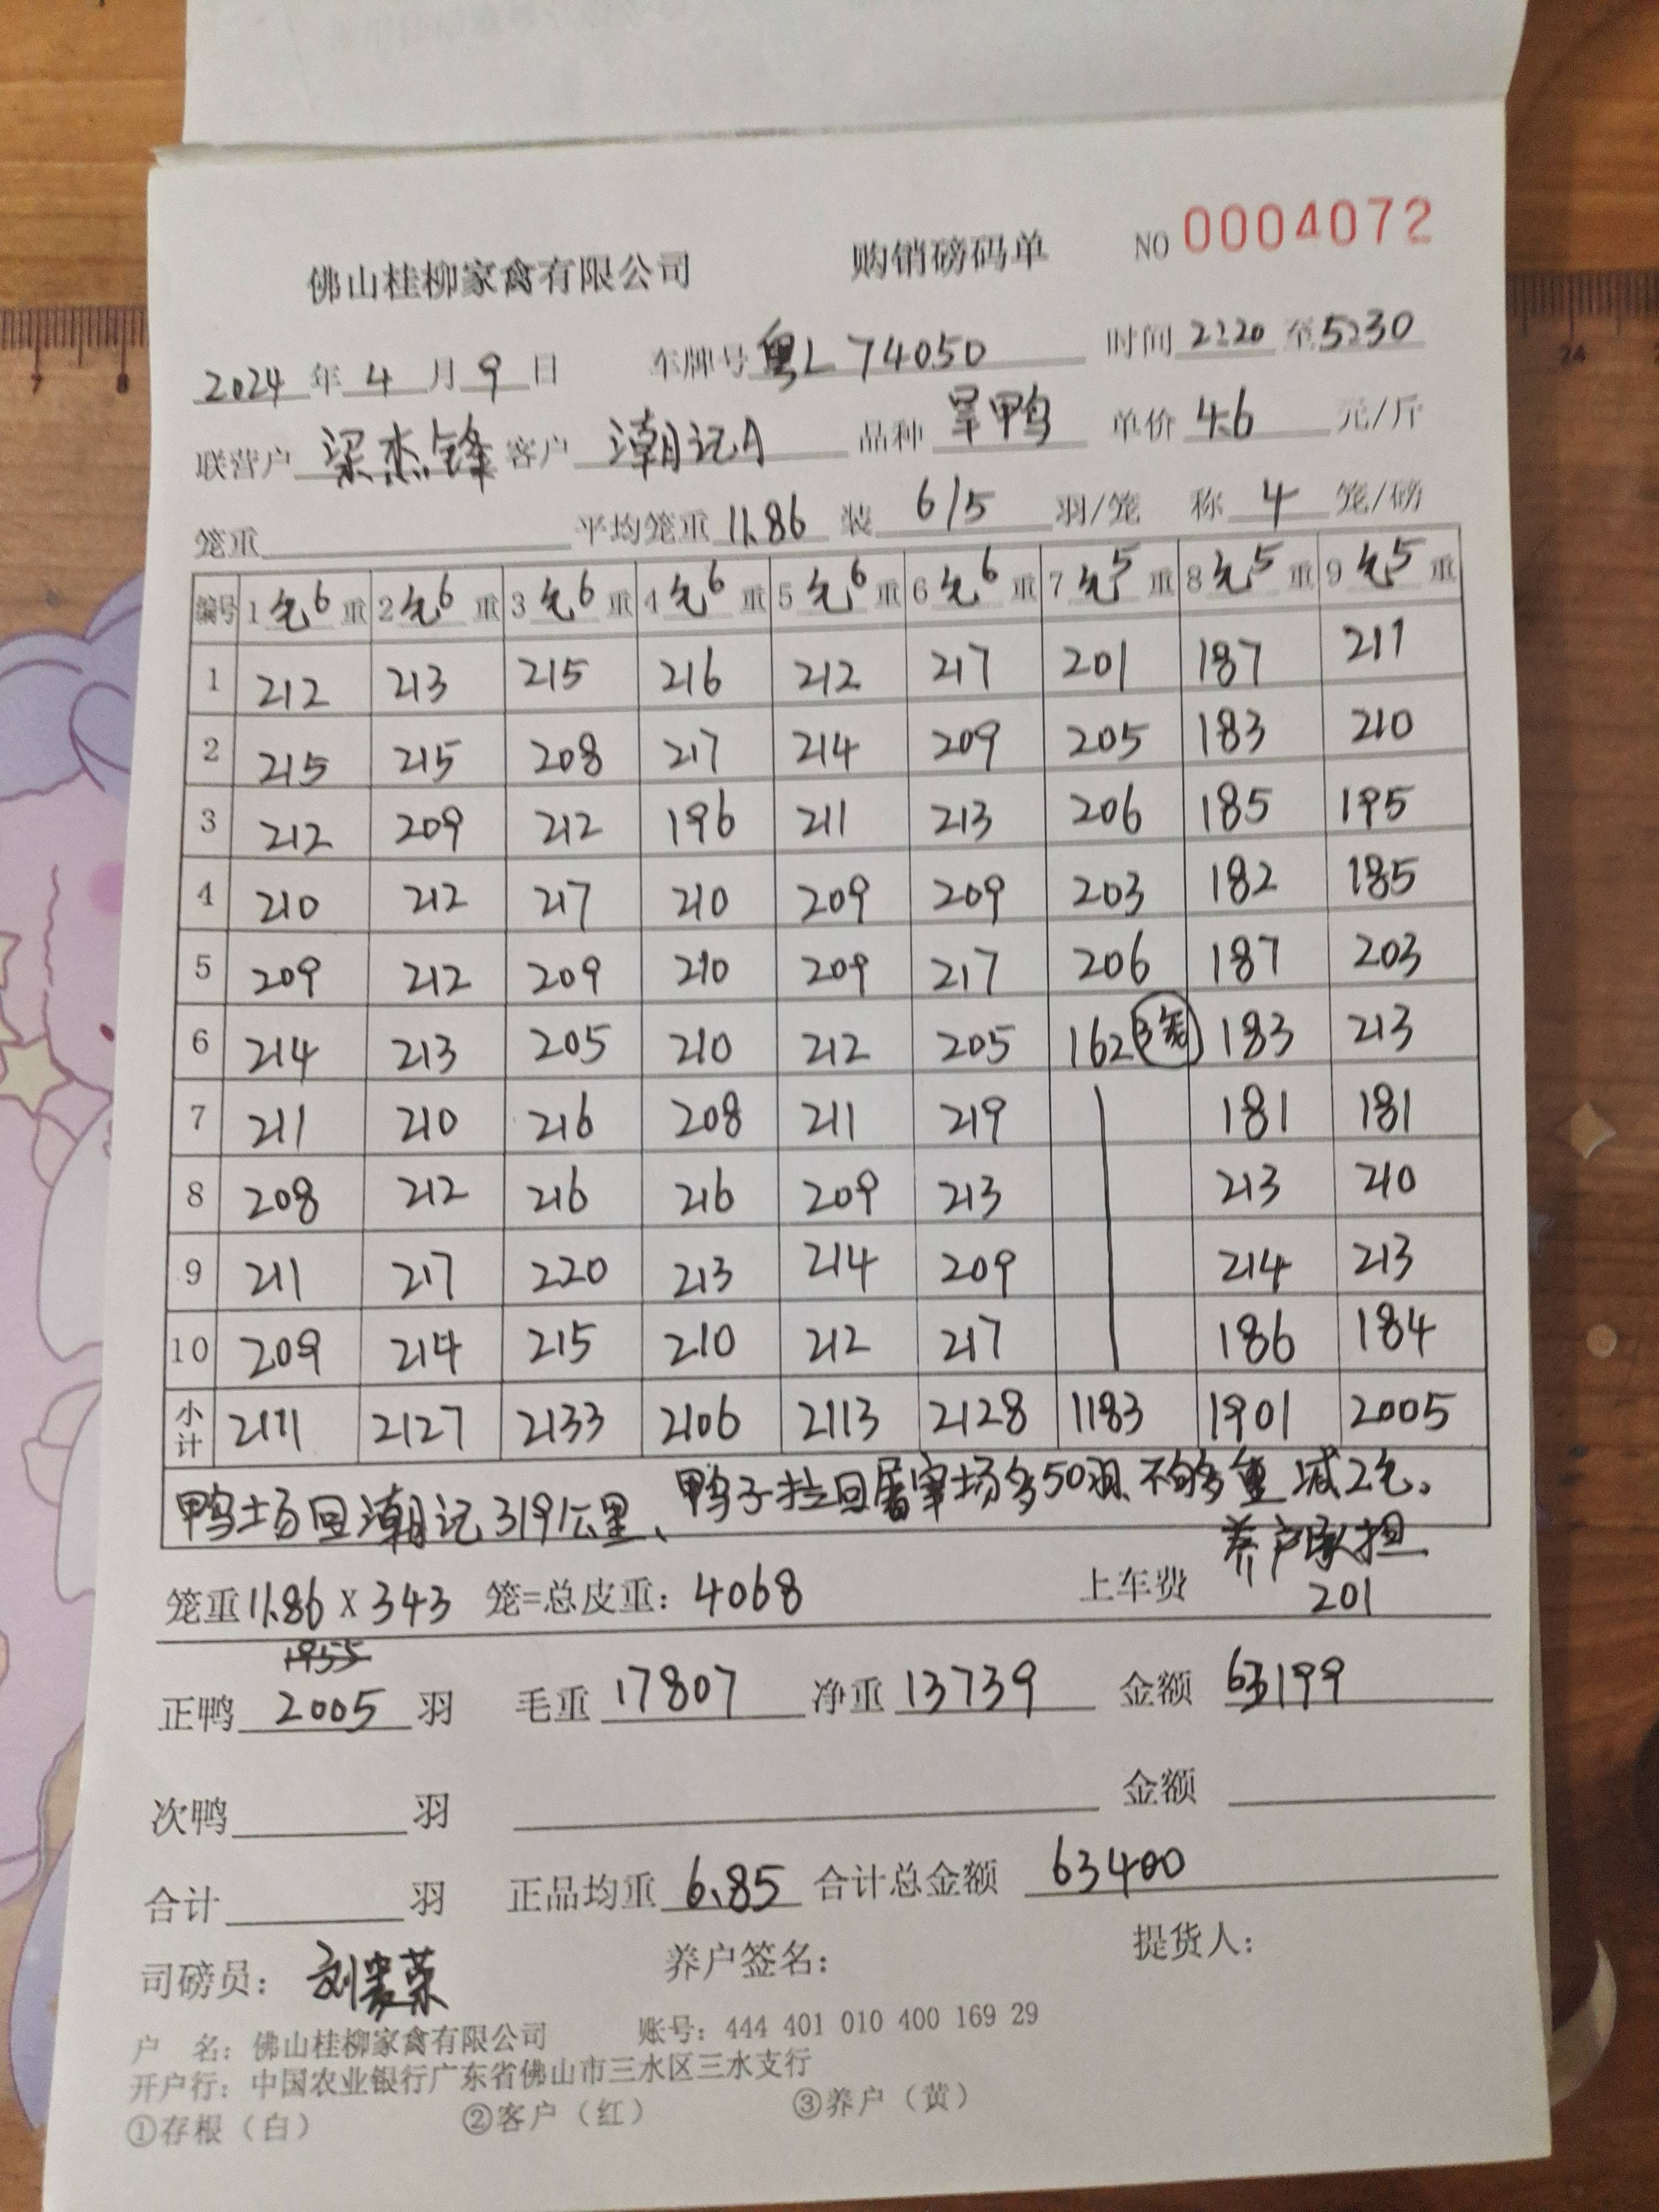 佛山桂柳家禽有限公司 购销磅码单 NO 0004072
2024 年 4 月 9 日 车牌号 粤L 74050 时间 2220 至 5230
联营户 梁杰锋 客户 潮记A 品种 旱鸭 单价 4.6 元/斤
笼重 平均笼重 11.86 装 6/5 羽/笼 称 4 笼/磅
编号 1 毛6 重 2 毛6 重 3 毛6 重 4 毛6 重 5 毛6 重 6 毛6 重 7 毛5 重 8 毛5 重 9 毛5 重
1 212 213 215 216 212 217 201 187 211
2 215 215 208 217 214 209 205 183 210
3 212 209 212 196 211 213 206 185 195
4 210 212 217 210 209 209 203 182 185
5 209 212 209 210 209 217 206 187 203
6 214 213 205 210 212 205 162 3笼 183 213
7 211 210 216 208 211 219 181 181
8 208 212 216 216 209 213 213 210
9 211 217 220 213 214 209 214 213
10 209 214 215 210 212 217 186 184
小计 2111 2127 2133 2106 2113 2128 1183 1901 2005
鸭场回潮记319公里、鸭子拉回屠宰场多50羽、不够重减2毛。
养户承担
笼重 11.86 X 343 笼=总皮重: 4068 上车费 201
1955
正鸭 2005 羽 毛重 17807 净重 13739 金额 63199
次鸭 羽 金额
合计 羽 正品均重 6.85 合计总金额 63400
司磅员: 养户签名: 提货人:
户 名: 佛山桂柳家禽有限公司 账号: 444 401 010 400 169 29
开户行: 中国农业银行广东省佛山市三水区三水支行
①存根(白) ②客户(红) ③养户(黄)